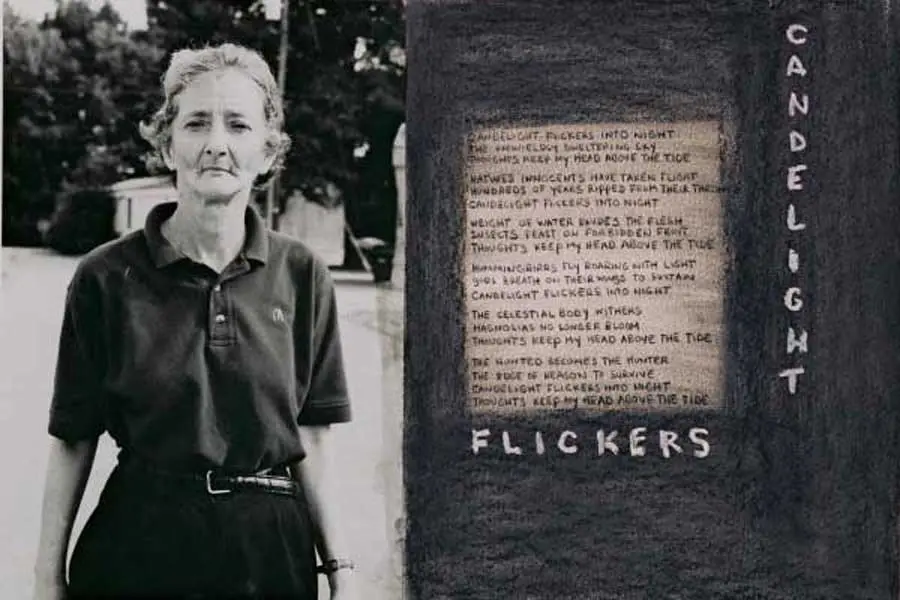 CANDELIGHT
CANDELIGHT FLICKERS INTO NIGHT
THE SWELTERING SKY
THOUGHTS KEEP MY HEAD ABOVE THE TIDE
INNOCENTS HAVE TAKEN FLIGHT
HUNDREDS OF YEARS RIPPED FROM THEIR
CANDELIGHT FLICKERS INTO NIGHT
WEIGHT OF WATER DIVIDES THE FLESH
INSECTS FEAST ON FORBIDDEN FRUIT
THOUGHTS KEEP MY HEAD ABOVE THE TIDE
HUMMINGBIRDS FLY ROARING WITH LIGHT
BREATH ON THEIR WINGS TO SUSTAIN
CANDELIGHT FLICKERS INTO NIGHT
THE CELESTIAL BODY WITHERS
MAGNOLIAS NO LONGER BLOOM
THOUGHTS KEEP MY HEAD ABOVE THE TIDE
THE HUNTED BECOMES THE HUNTER
THE EDGE OF REASON TO SURVIVE
CANDELIGHT FLICKERS INTO NIGHT
THOUGHTS KEEP MY HEAD ABOVE THE TIDE
FLICKERS